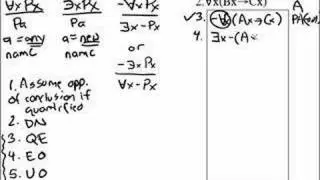 ∀xPx ∃xPx -∀xPx
Pa Pa ∃x-Px
a = any a = new
name name or
-∃xPx
∀x-Px
1. Assume opp. of conclusion if quantified
2. DN
3. QE
4. EO
5. UO
2. ∀x(Bx→Cx) A
✓ 3. -∀x(Ax→Cx)
4. ∃x-(A